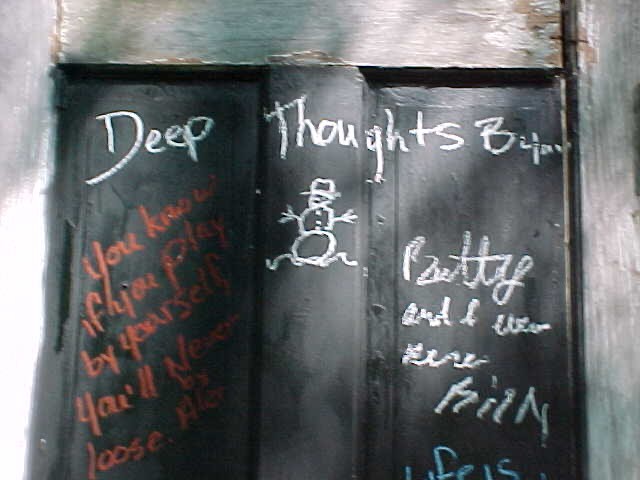 Deep Thoughts By
you know
if you play
by yourself
you'll Never
loose.
by Alex
Patty
and I were
here
Life is